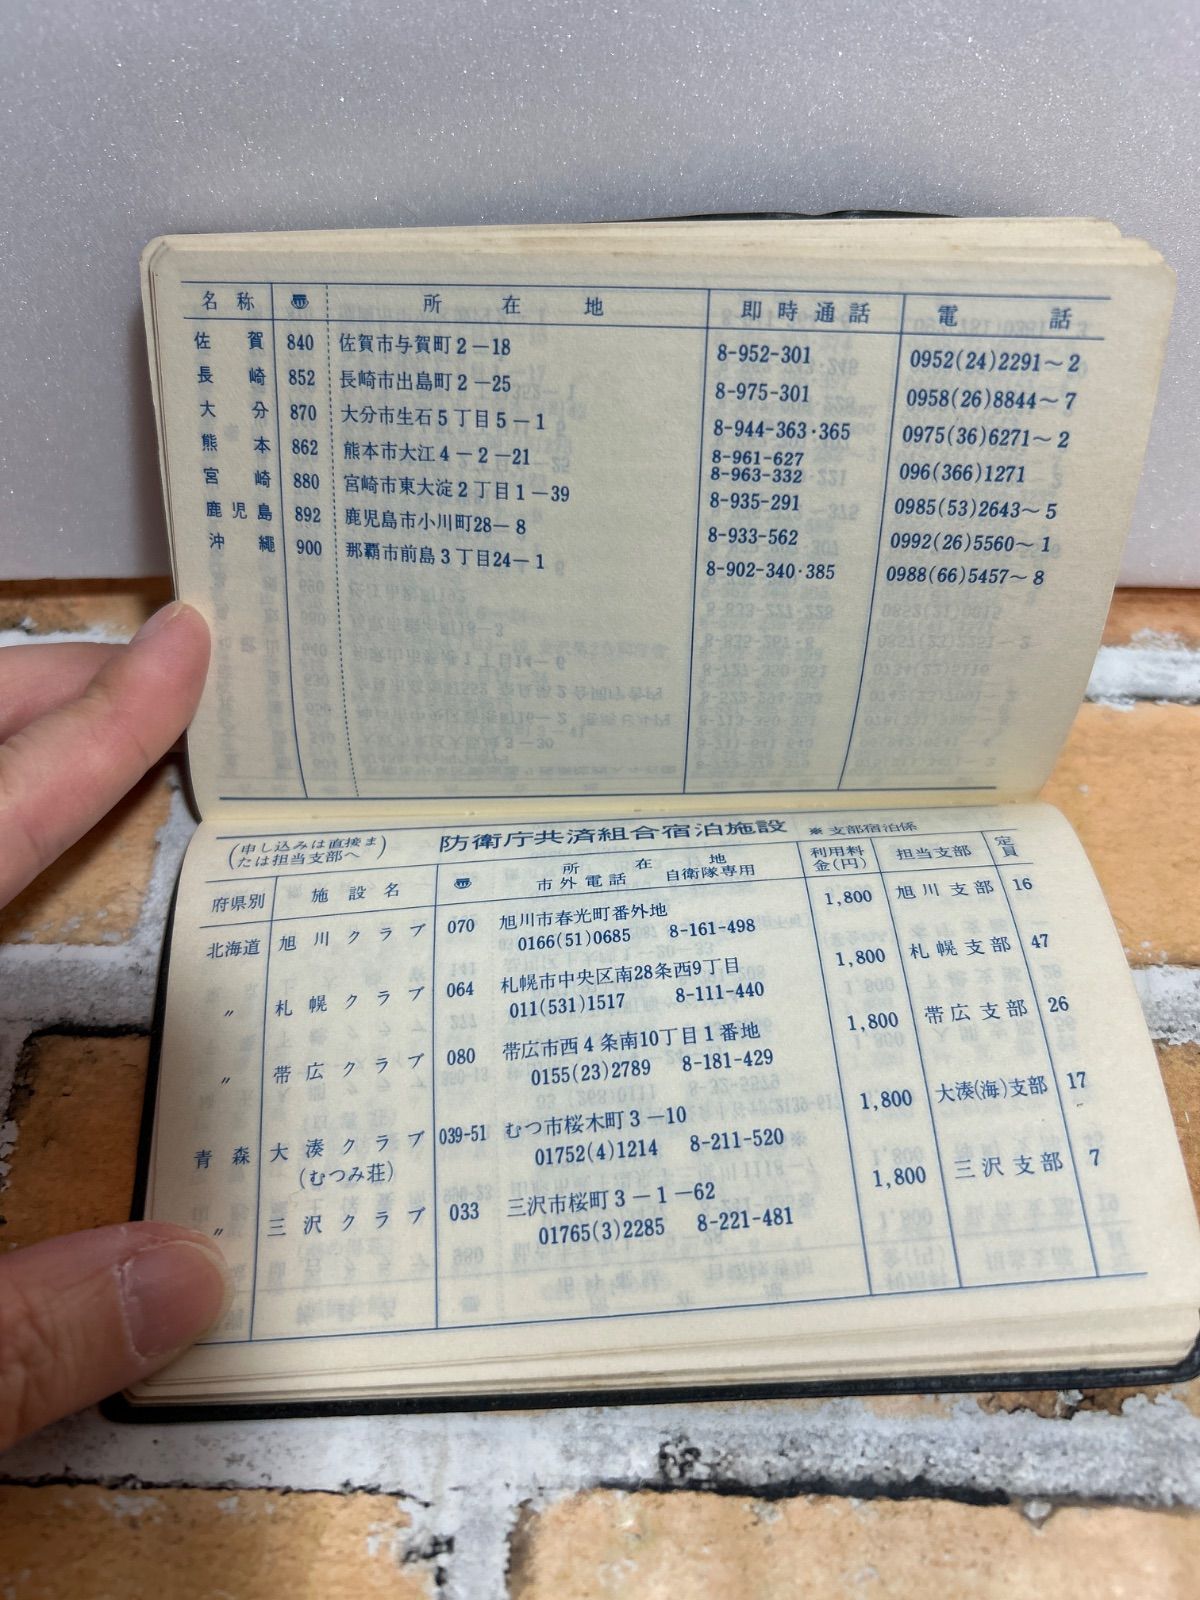 名称 〠 所在地 即時通話 電話
佐賀 840 佐賀市与賀町2−18 8-952-301 0952(24)2291〜2
長崎 852 長崎市出島町2−25 8-975-301 0958(26)8844〜7
大分 870 大分市生石5丁目5−1 8-944-363・365 0975(36)6271〜2
熊本 862 熊本市大江4−2−21 8-961-627 096(366)1271
8-963-332
宮崎 880 宮崎市東大淀2丁目1−39 8-935-291 0985(53)2643〜5
鹿児島 892 鹿児島市小川町28−8 8-933-562 0992(26)5560〜1
沖縄 900 那覇市前島3丁目24−1 8-902-340・385 0988(66)5457〜8
(申し込みは直接または担当支部へ) 防衛庁共済組合宿泊施設 ※支部宿泊係
府県別 施設名 〠 所在地 利用料金(円) 担当支部 定員
市外電話 自衛隊専用
北海道 旭川クラブ 070 旭川市春光町番外地 1,800 旭川支部 16
0166(51)0685 8-161-498
〃 札幌クラブ 064 札幌市中央区南28条西9丁目 1,800 札幌支部 47
011(531)1517 8-111-440
〃 帯広クラブ 080 帯広市西4条南10丁目1番地 1,800 帯広支部 26
0155(23)2789 8-181-429
青森 大湊クラブ 039-51 むつ市桜木町3−10 1,800 大湊(海)支部 17
(むつみ荘) 01752(4)1214 8-211-520
〃 三沢クラブ 033 三沢市桜町3−1−62 1,800 三沢支部 7
01765(3)2285 8-221-481